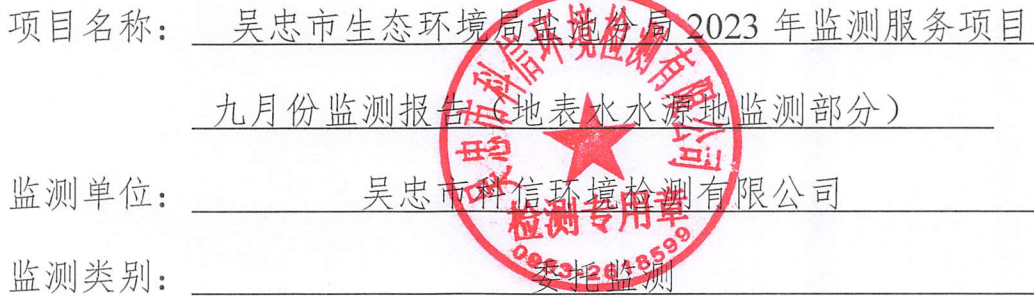 项目名称: 吴忠市生态环境局盐池分局 2023 年监测服务项目
九月份监测报告(地表水水源地监测部分)
监测单位: 吴忠市科信环境检测有限公司
监测类别: 委托监测
吴忠市科信环境检测有限公司
检测专用章
0953-2618599